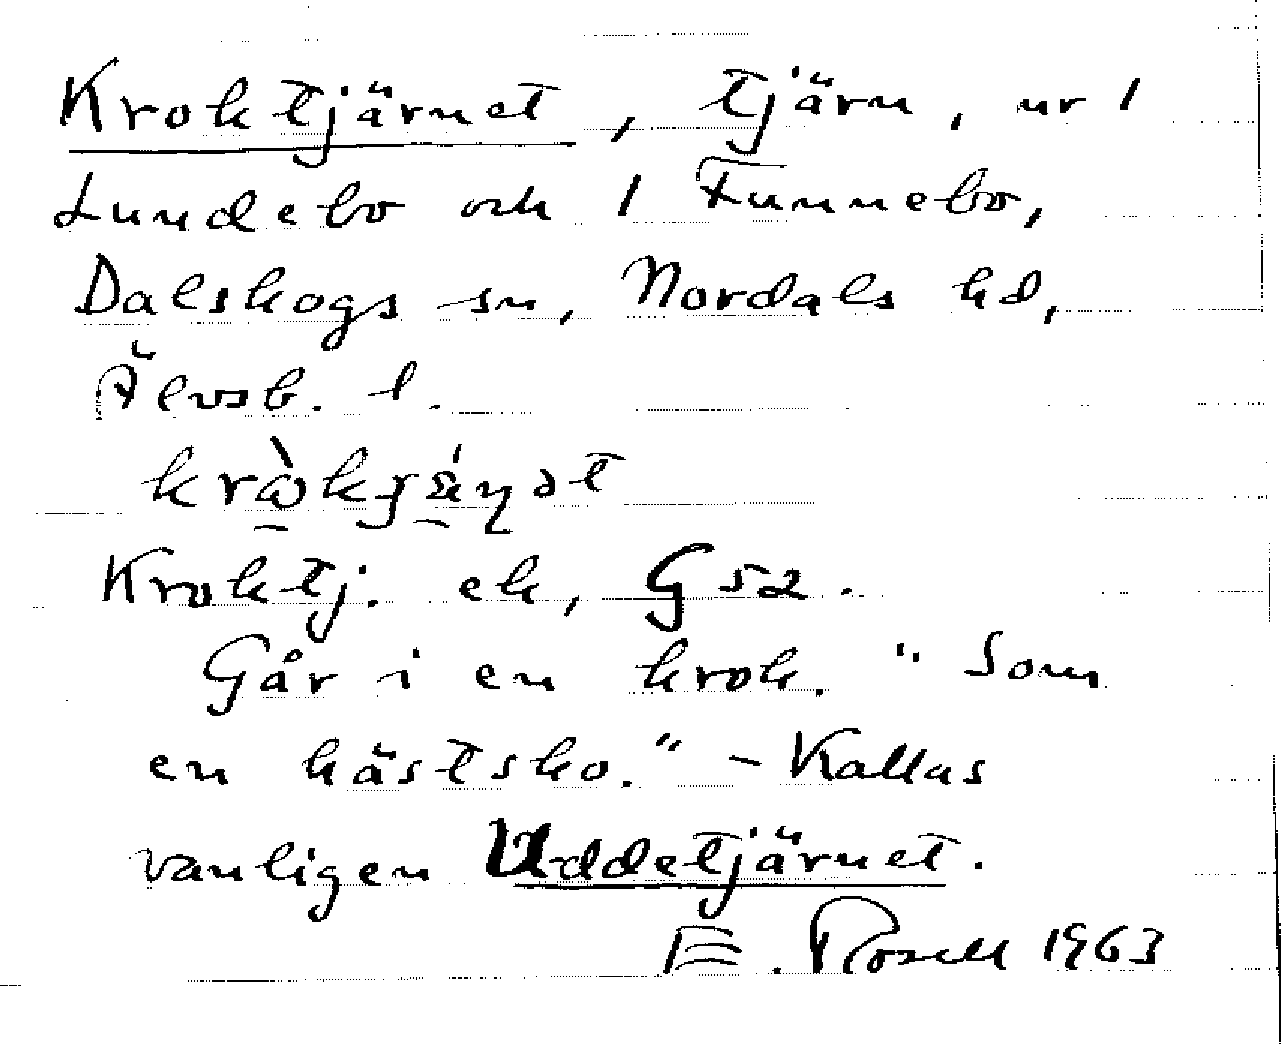 Kroktjärnet, tjärn, nr 1
Lundebo och 1 Funnebo,
Dalskogs sn, Nordals hd,
Älvsb. l.
Kroktj. ek, G 52.
Går i en krok. "Som
en hästsko." - Kallas
vanligen Uddetjärnet.
E. Rosell 1963